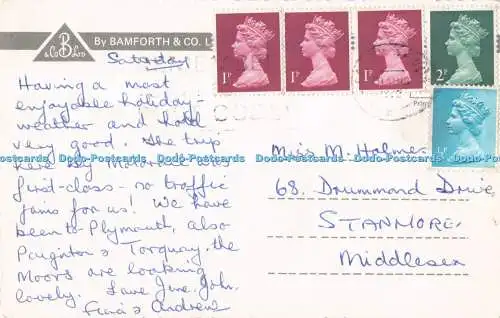 By BAMFORTH & CO. L
B
& Co Ltd
1P
1P
1P
2P
½P
Saturday
Having a most
enjoyable holiday-
weather and hotel
very good. The trip
here by Motorail was
first-class - no traffic
jams for us! We have
been to Plymouth, also
Paignton & Torquay, the
Moors are looking
lovely. Love June, John,
Fiona & Andrew
Miss M. Holmes
68, Drummond Drive,
STANMORE,
Middlesex
Dodo-Postcards Dodo-Postcards Dodo-Postcards Dodo-Postcards Dodo-Postcards